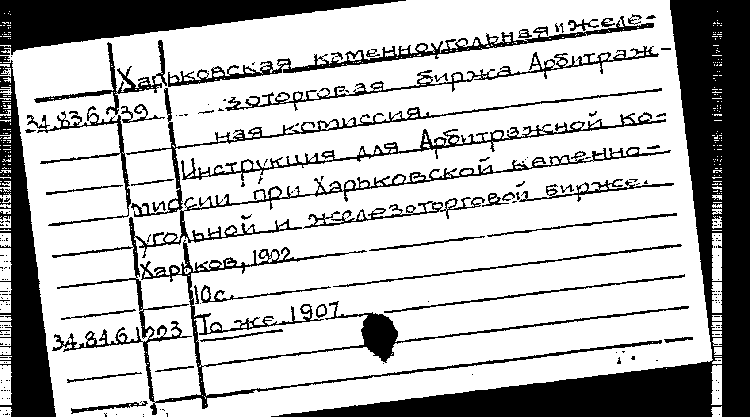 Харьковская каменноугольная и желе-
34.83.6.239. зоторговая биржа. Арбитраж-
ная комиссия.
Инструкция для Арбитражной ко-
миссии при Харьковской каменно-
угольной и железоторговой бирже.
Харьков, 1902.
10с.
34.84.6.1223 То же. 1907.